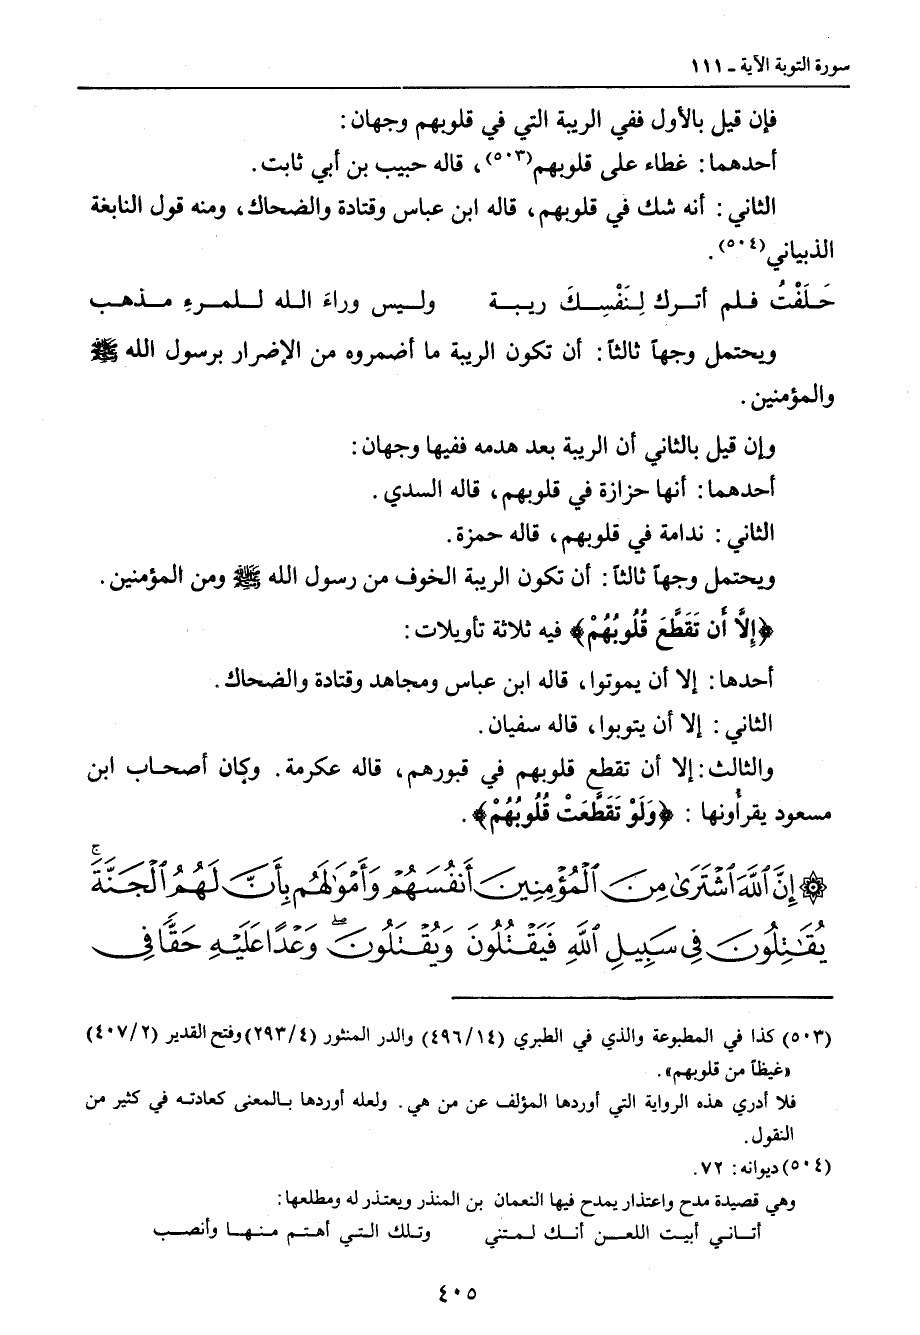 سورة التوبة الآية ـ ١١١
فإن قيل بالأول ففي الريبة التي في قلوبهم وجهان:
أحدهما: غطاء على قلوبهم(٥٠٣)، قاله حبيب بن أبي ثابت.
الثاني: أنه شك في قلوبهم، قاله ابن عباس وقتادة والضحاك، ومنه قول النابغة
الذبياني(٥٠٤).
حَلَفْتُ فلم أترك لِنَفْسِكَ ريبة وليس وراءَ الله للمرءِ مذهب
ويحتمل وجهاً ثالثاً: أن تكون الريبة ما أضمروه من الإضرار برسول الله ﷺ
والمؤمنين.
وإن قيل بالثاني أن الريبة بعد هدمه ففيها وجهان:
أحدهما: أنها حزازة في قلوبهم، قاله السدي.
الثاني: ندامة في قلوبهم، قاله حمزة.
ويحتمل وجهاً ثالثاً: أن تكون الريبة الخوف من رسول الله ﷺ ومن المؤمنين.
﴿إِلَّا أَن تَقَطَّعَ قُلُوبُهُمْ﴾ فيه ثلاثة تأويلات:
أحدها: إلا أن يموتوا، قاله ابن عباس ومجاهد وقتادة والضحاك.
الثاني: إلا أن يتوبوا، قاله سفيان.
والثالث: إلا أن تقطع قلوبهم في قبورهم، قاله عكرمة. وكان أصحاب ابن
مسعود يقرأونها: ﴿وَلَوْ تَقَطَّعَتْ قُلُوبُهُمْ﴾.
۞ إِنَّ ٱللَّهَ ٱشْتَرَىٰ مِنَ ٱلْمُؤْمِنِينَ أَنفُسَهُمْ وَأَمْوَٰلَهُم بِأَنَّ لَهُمُ ٱلْجَنَّةَ ۚ
يُقَٰتِلُونَ فِى سَبِيلِ ٱللَّهِ فَيَقْتُلُونَ وَيُقْتَلُونَ ۖ وَعْدًا عَلَيْهِ حَقًّا فِى
(٥٠٣) كذا في المطبوعة والذي في الطبري (٤٩٦/١٤) والدر المنثور (٢٩٣/٤) وفتح القدير (٤٠٧/٢)
«غيظاً من قلوبهم».
فلا أدري هذه الرواية التي أوردها المؤلف عن من هي. ولعله أوردها بالمعنى كعادته في كثير من
النقول.
(٥٠٤) ديوانه: ٧٢.
وهي قصيدة مدح واعتذار يمدح فيها النعمان بن المنذر ويعتذر له ومطلعها:
أتاني أبيت اللعن أنك لمتني وتلك التي أهتم منها وأنصب
٤٠٥